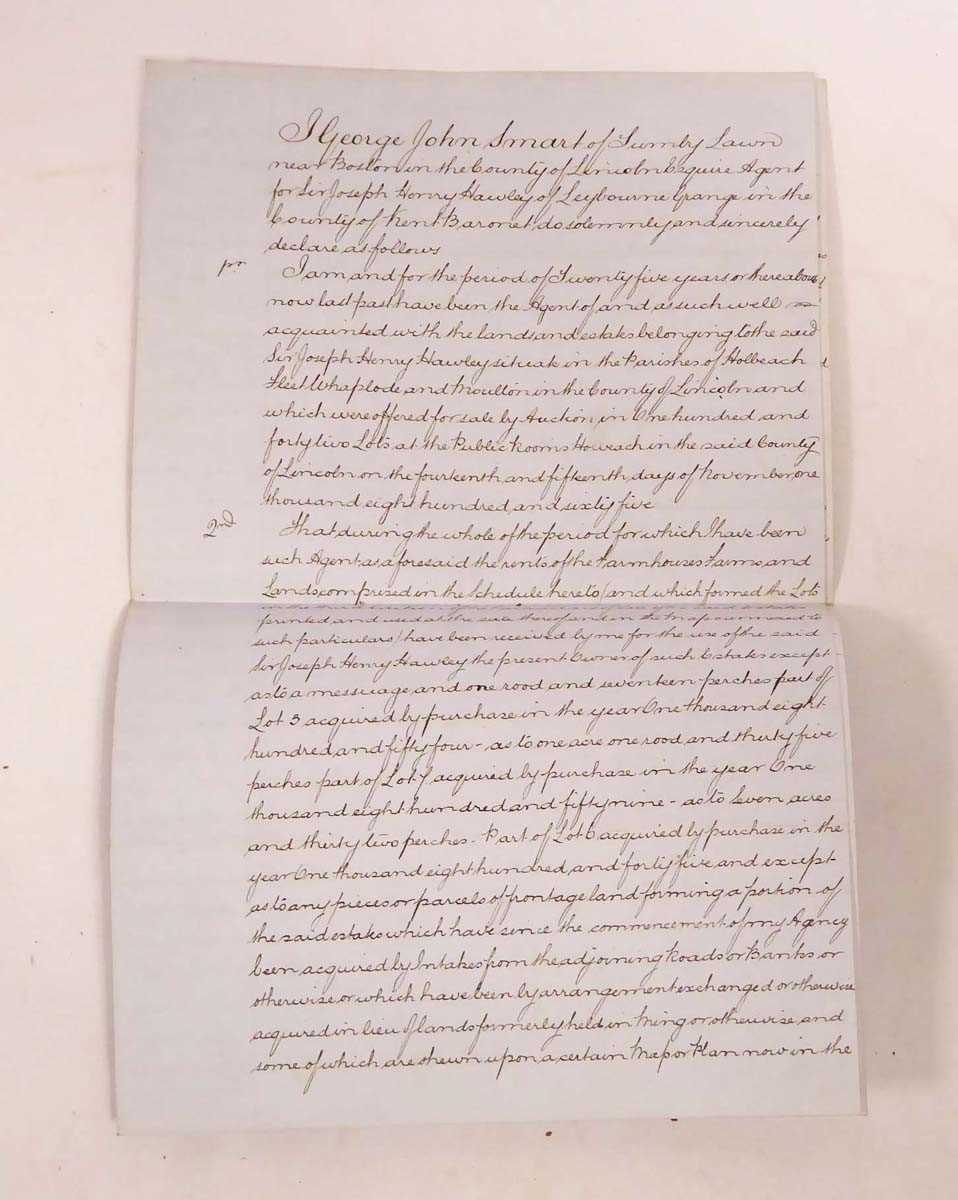 I George John Smart of Tumby Lawn
near Boston in the County of Lincoln Esquire Agent
for Sir Joseph Henry Hawley of Leybourne Grange in the
County of Kent Baronet do solemnly and sincerely
declare as follows
I am and for the period of Twenty five years or thereabouts
now last past have been the Agent of and as such well
acquainted with the lands and estates belonging to the said
Sir Joseph Henry Hawley situate in the Parishes of Holbeach
Fleet Whaplode and Moulton in the County of Lincoln and
which were offered for sale by Auction in One hundred and
forty two Lots at the Public Rooms in the said County
of Lincoln on the fourteenth and fifteenth days of November one
thousand eight hundred and sixty five
2nd
That during the whole of the period for which I have been
such Agent as aforesaid the rents of the Farmhouses Farms and
Lands comprised in the Schedule hereto (and which formed the Lots
printed and used at the sale thereof and in the Map annexed to
such particulars) have been received by me for the use of the said
Sir Joseph Henry Hawley the present Owner of such Estates except
as to a messuage and one rood and seventeen perches part of
Lot 3 acquired by purchase in the year One thousand eight
hundred and fifty four - as to one acre one rood and thirty five
perches part of Lot acquired by purchase in the year One
thousand eight hundred and fifty nine - as to Seven acres
and thirty two perches - Part of Lot 6 acquired by purchase in the
year One thousand eight hundred and forty five and except
as to any pieces or parcels of frontage land forming a portion of
the said estates which have since the commencement of my Agency
been acquired by Intakes from the adjoining Roads or Banks or
otherwise or which have been by arrangement exchanged or otherwise
acquired in lieu of lands formerly held in Ming or otherwise and
some of which are shewn upon a certain Map or Plan now in the